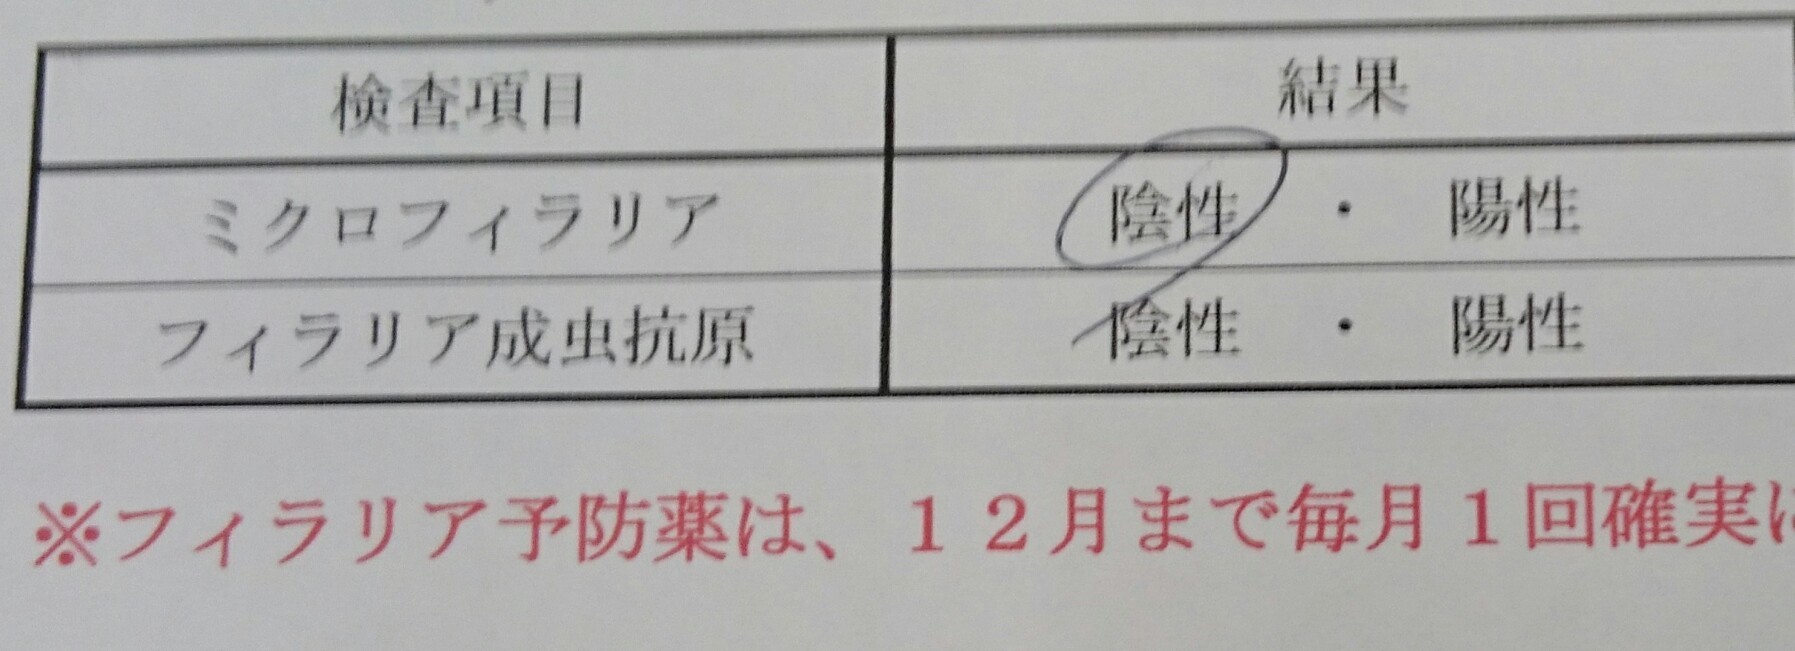 検査項目 結果
ミクロフィラリア 陰性 ・ 陽性
フィラリア成虫抗原 陰性 ・ 陽性
※フィラリア予防薬は、１２月まで毎月１回確実に